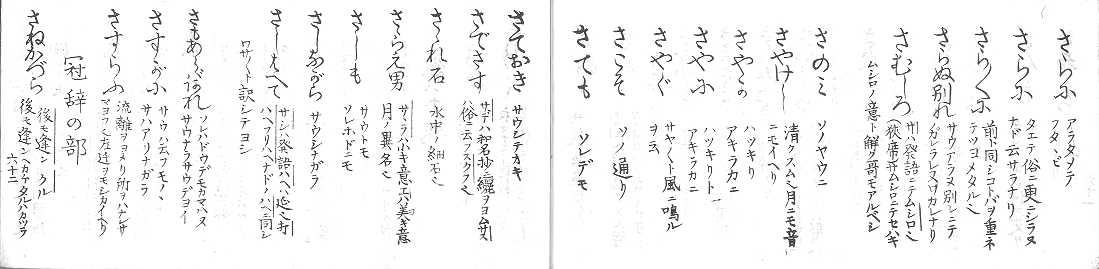 さらに アラタメテ
フタヽビ
さらに タエテ俗ニ更ニシラヌ
ナド云サラナリ
さら〱に 前ニ同シコトバヲ重ネ
テツヨメタル也
さらぬ別れ サウアラヌ別レニテ
さむしろ サハ発語ニテムシロ也
ムシロノ意ト解ク哥モアルベシ
さのミ ソノヤウニ
さやけし 清クスム也月ニモ音
ニモイヘリ
さやかに ハツキリ
アキラカニ
さやに ハツキリト
アキラカニ
さやぐ サヤ〱ト風ニ鳴ル
ヲ云
さこそ ソノ通り
さても ソレデモ
さておき サウシテオキ
さでさす サデハ和名抄ニ纚ヲヨム
俗ニ云フスクフ
さゞれ石 水中ノ細石也
さゝらえ男
月ノ異名也
さしも サウトモ
ソレホドニモ
さしながら サウシナガラ
さしはへて サシハ発語ハヘハ延也打
ハヘフリハヘナドノハヘニ同シ
ワザ〱ト訳シテヨシ
さもあらばあれ ソレハドウデモカマハヌ
サウナラサウデヨイ
さすがに サウハ云フモノヽ
サハアリナガラ
さすらふ 流離ヲヨメリ所ヲハナレサ
マヨフ也左遷ヲモシカイヘリ
冠辞の部
さねかづら 後モ逢ン クル
後モ逢ンヘカケタルハカヅラ
六十二